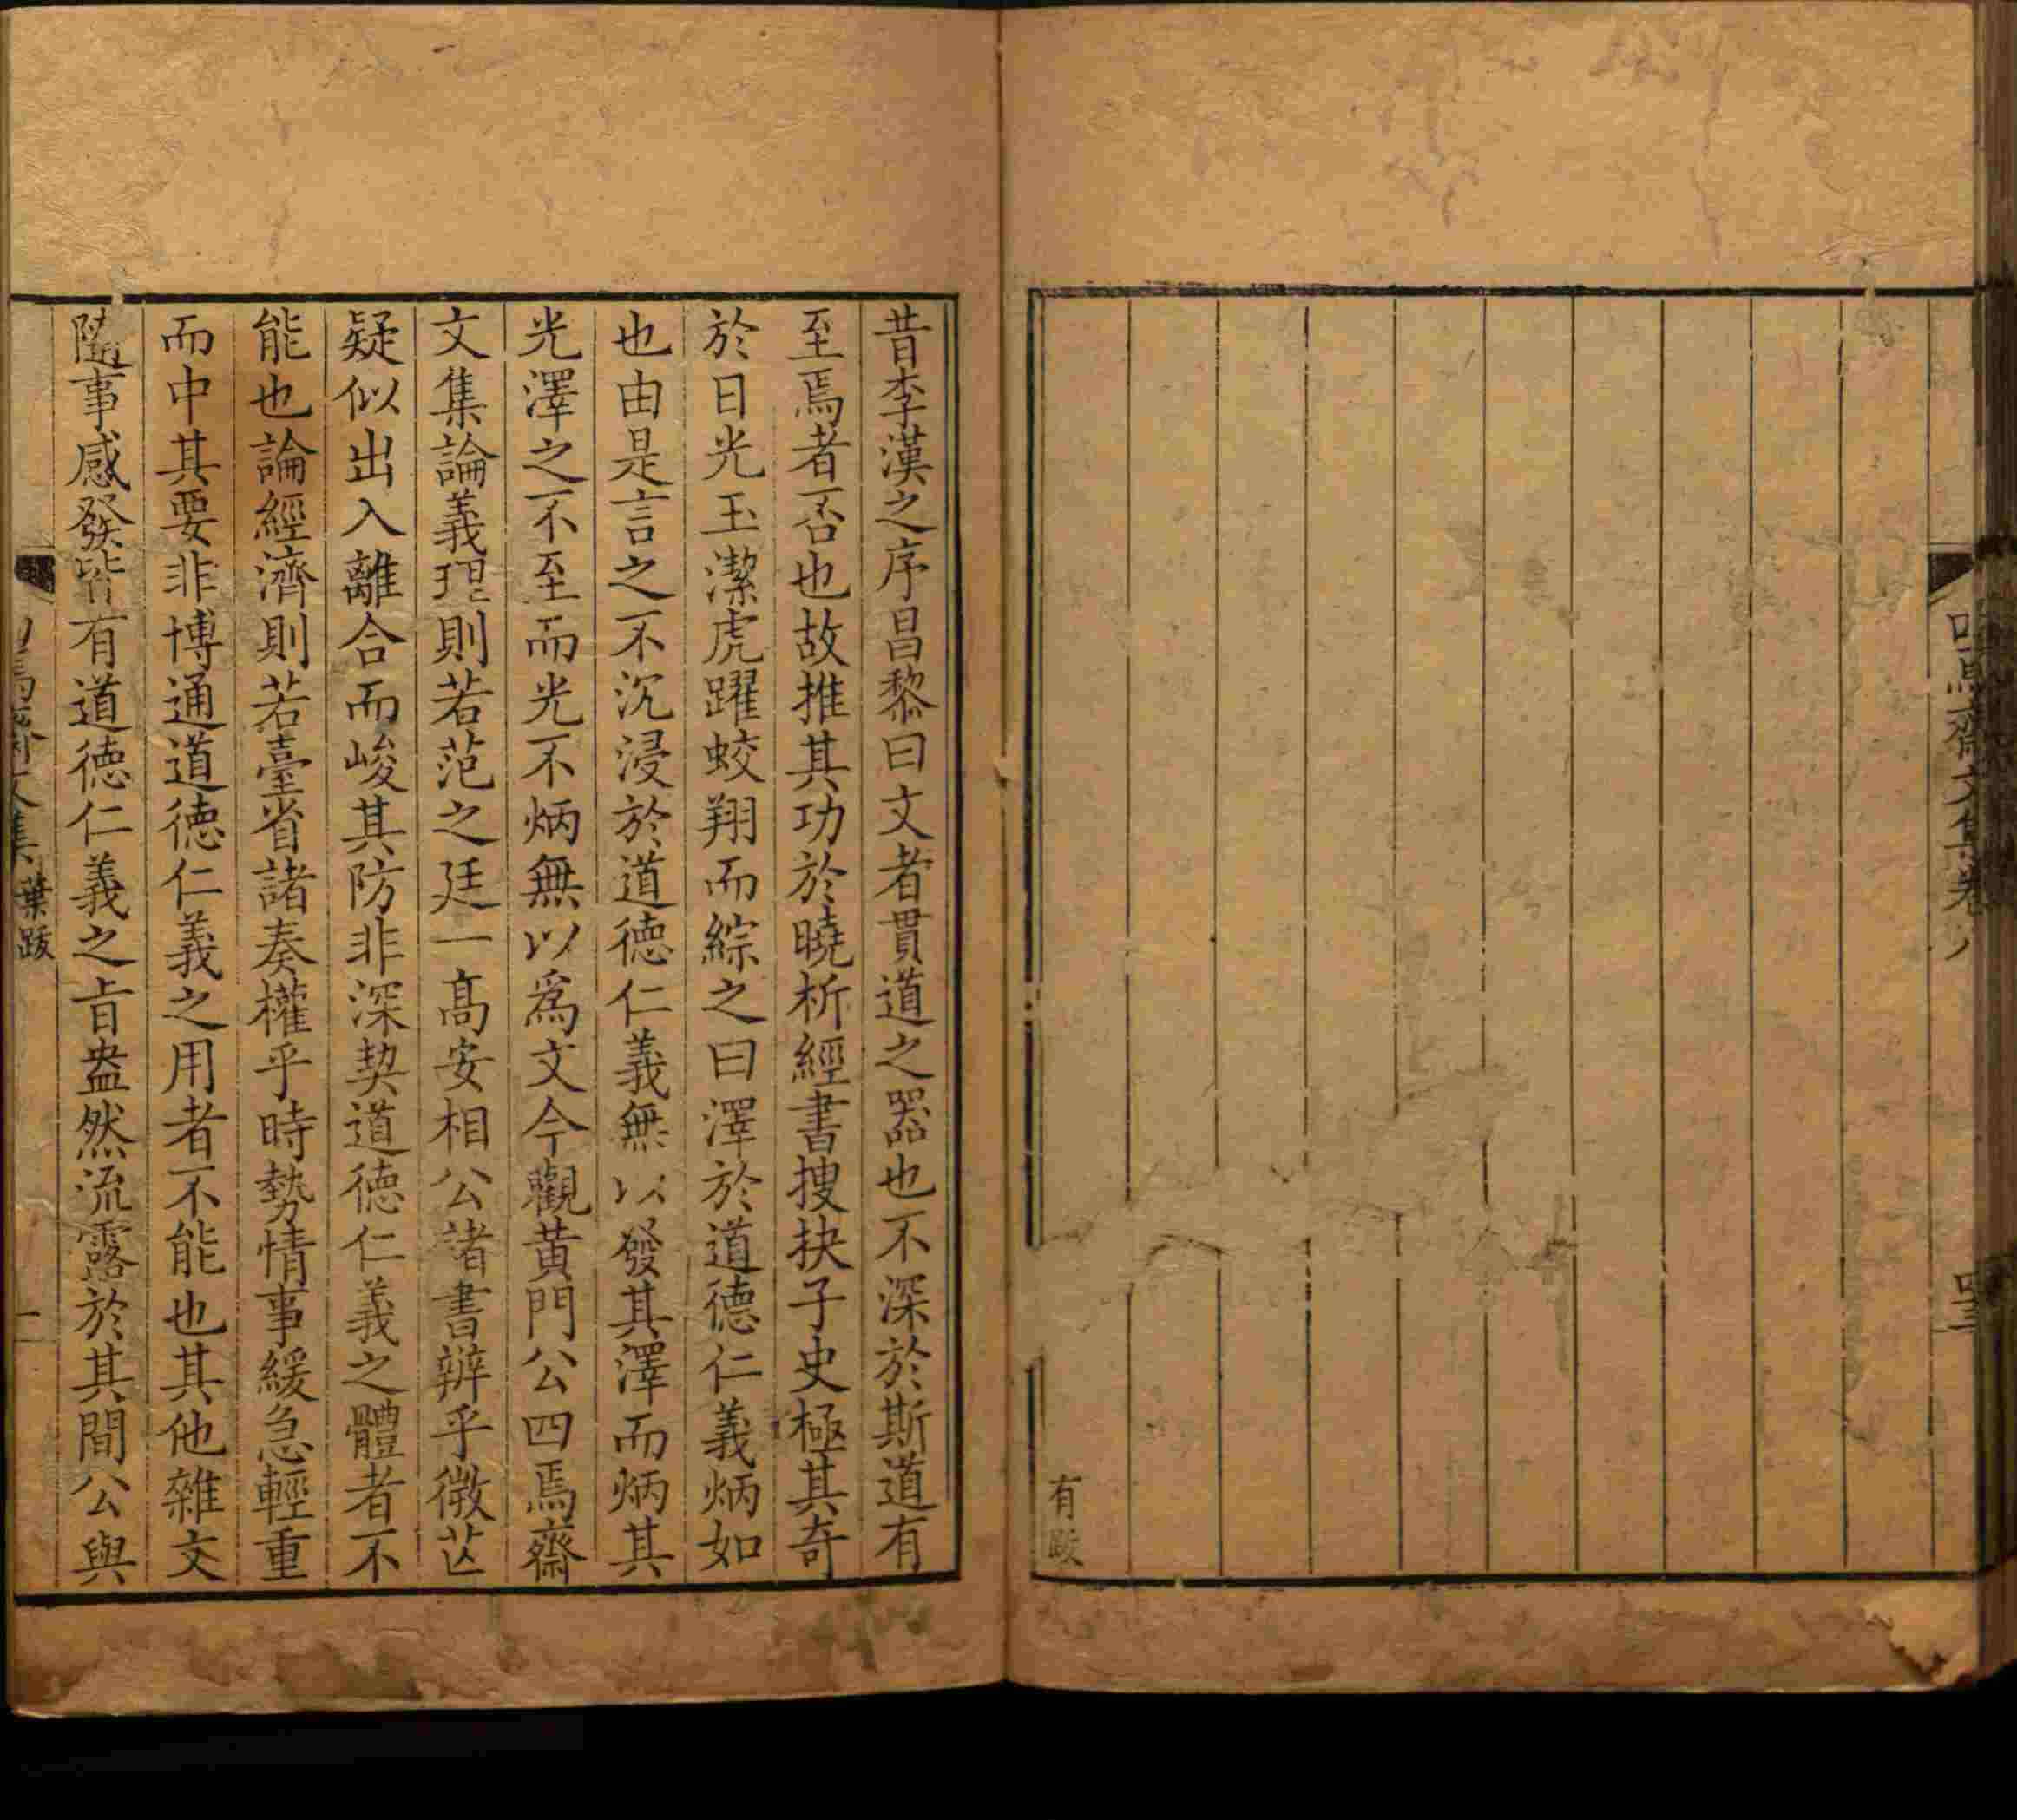 四焉齋文集卷八
四三
有跋
昔李漢之序昌黎曰文者貫道之器也不深於斯道有
至焉者否也故推其功於曉析經書搜抉子史極其奇
於日光玉潔虎躍蛟翔而綜之曰澤於道德仁義炳如
也由是言之不沉浸於道德仁義無以發其澤而炳其
光澤之不至而光不炳無以爲文今觀黄門公四焉齋
文集論義理則若范之廷一髙安相公諸書辨乎微芒
疑似出入離合而峻其防非深契道德仁義之體者不
能也論經濟則若臺省諸奏權乎時勢情事緩急輕重
而中其要非博通道德仁義之用者不能也其他雜文
隨事感發皆有道德仁義之旨盎然流露於其間公與
四焉齋文集 葉跋
一